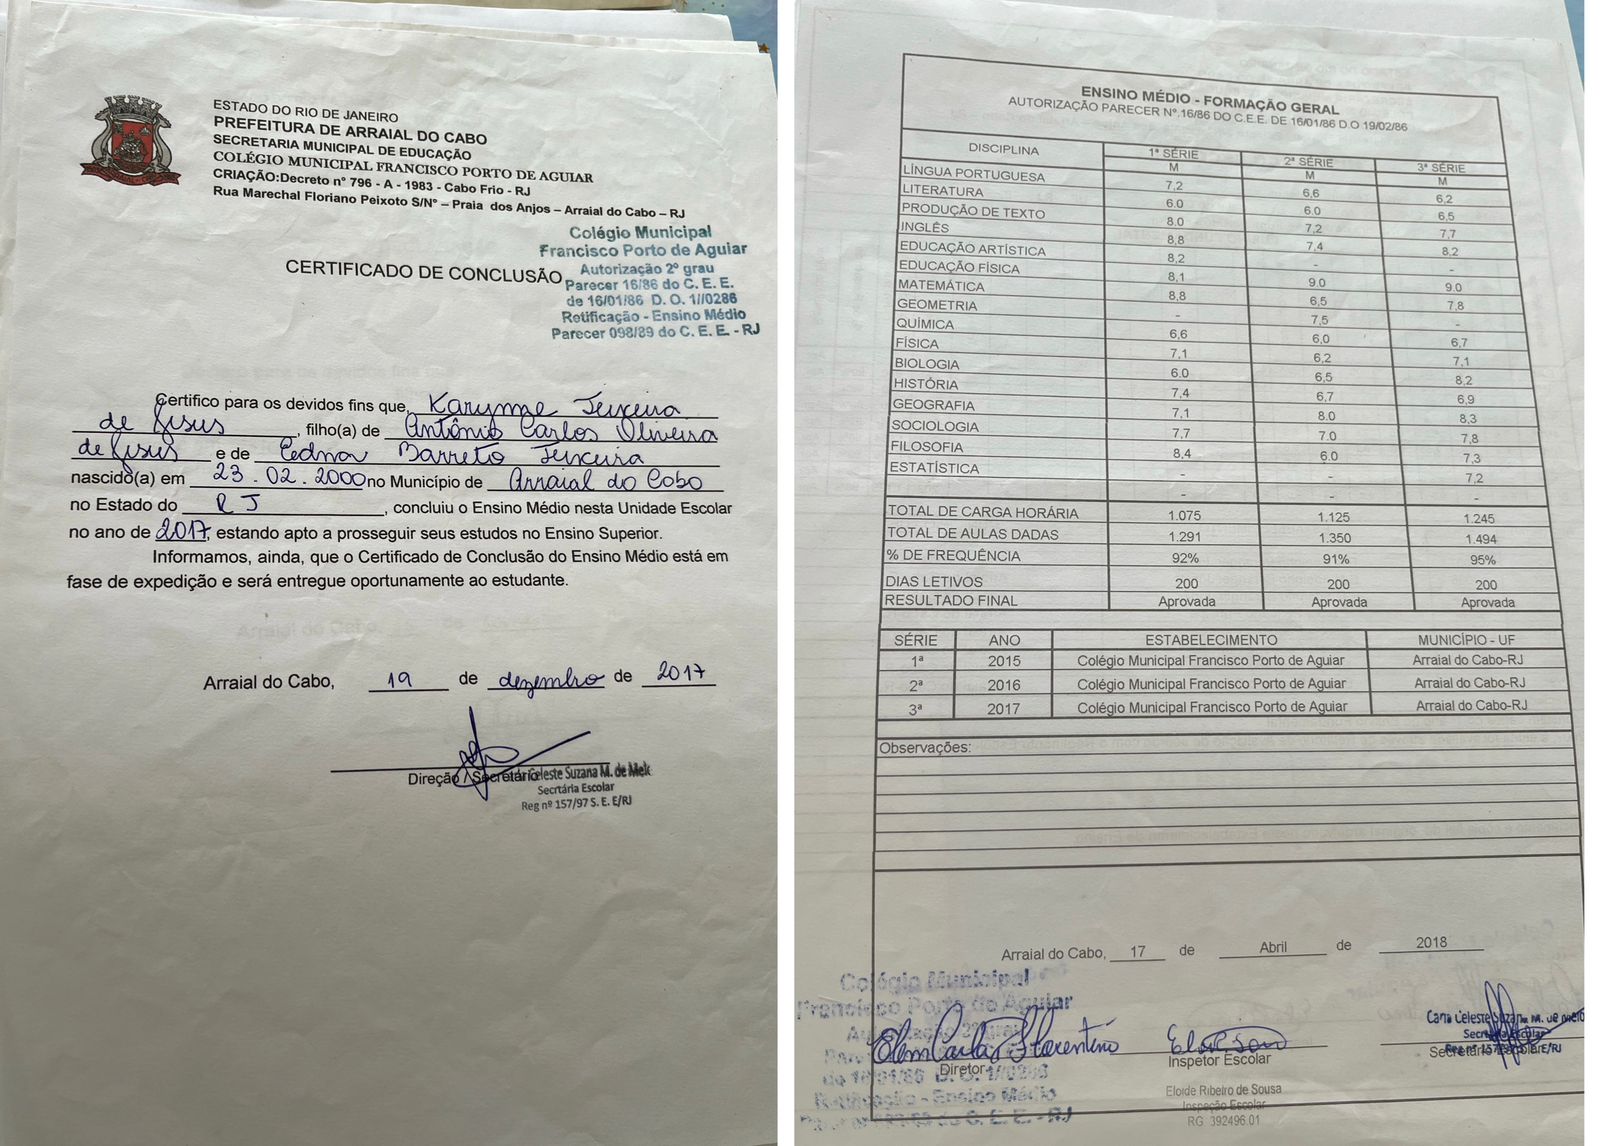 ESTADO DO RIO DE JANEIRO
PREFEITURA DE ARRAIAL DO CABO
SECRETARIA MUNICIPAL DE EDUCAÇÃO
COLÉGIO MUNICIPAL FRANCISCO PORTO DE AGUIAR
CRIAÇÃO:Decreto n° 796 - A - 1983 - Cabo Frio - RJ
Rua Marechal Floriano Peixoto S/N° – Praia dos Anjos – Arraial do Cabo – RJ
Colégio Municipal
Francisco Porto de Aguiar
Autorização 2º grau
Parecer 16/86 do C. E. E.
de 16/01/86 D. O. 1//0286
Retificação - Ensino Médio
Parecer 098/89 do C. E. E. - RJ
CERTIFICADO DE CONCLUSÃO
Certifico para os devidos fins que, Karynne Teixeira
de Jesus, filho(a) de Antônio Carlos Oliveira
de Jesus e de Cedna Barreto Teixeira
nascido(a) em 23.02.2000 no Município de Arraial do Cabo
no Estado do RJ, concluiu o Ensino Médio nesta Unidade Escolar
no ano de 2017, estando apto a prosseguir seus estudos no Ensino Superior.
Informamos, ainda, que o Certificado de Conclusão do Ensino Médio está em
fase de expedição e será entregue oportunamente ao estudante.
Arraial do Cabo, 19 de dezembro de 2017
Direção / Secretário
Celeste Suzana M. de Melo
Secrtária Escolar
Reg nº 157/97 S. E. E/RJ
ENSINO MÉDIO - FORMAÇÃO GERAL
AUTORIZAÇÃO PARECER Nº.16/86 DO C.E.E. DE 16/01/86 D.O 19/02/86
DISCIPLINA 1ª SÉRIE 2ª SÉRIE 3ª SÉRIE
M M M
LÍNGUA PORTUGUESA 7,2 6,6 6,2
LITERATURA 6.0 6.0 6,5
PRODUÇÃO DE TEXTO 8.0 7,2 7,7
INGLÊS 8,8 7,4 8,2
EDUCAÇÃO ARTÍSTICA 8,2 - -
EDUCAÇÃO FÍSICA 8,1 9.0 9.0
MATEMÁTICA 8,8 6,5 7,8
GEOMETRIA - 7,5 -
QUÍMICA 6,6 6,0 6,7
FÍSICA 7,1 6,2 7,1
BIOLOGIA 6.0 6,5 8,2
HISTÓRIA 7,4 6,7 6,9
GEOGRAFIA 7,1 8.0 8,3
SOCIOLOGIA 7,7 7.0 7,8
FILOSOFIA 8,4 6.0 7,3
ESTATÍSTICA - - 7,2
- - -
TOTAL DE CARGA HORÁRIA 1.075 1.125 1.245
TOTAL DE AULAS DADAS 1.291 1.350 1.494
% DE FREQUÊNCIA 92% 91% 95%
DIAS LETIVOS 200 200 200
RESULTADO FINAL Aprovada Aprovada Aprovada
SÉRIE ANO ESTABELECIMENTO MUNICÍPIO - UF
1ª 2015 Colégio Municipal Francisco Porto de Aguiar Arraial do Cabo-RJ
2ª 2016 Colégio Municipal Francisco Porto de Aguiar Arraial do Cabo-RJ
3ª 2017 Colégio Municipal Francisco Porto de Aguiar Arraial do Cabo-RJ
Observações:
Arraial do Cabo, 17 de Abril de 2018
Colégio Municipal
Francisco Porto de Aguiar
Autorização 2º grau
de 16/01/86 D. O. 1//0286
Retificação - Ensino Médio
Elem Carla Florentino
Diretor
Inspetor Escolar
Eloide Ribeiro de Sousa
Inspeção Escolar
RG 392496.01
Celeste Suzana M. de Melo
Secrtária Escolar
Secretário Escolar